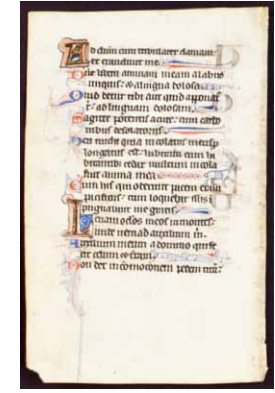 Ad dnm cum tribularer clamaui
et exaudiuit me.
Dne libera animam meam a labiis
iniquis: et a lingua dolosa.
Quid detur tibi aut quid apponat
tibi: ad linguam dolosam.
Sagitte potentis acute: cum carbo
nibus desolatoriis.
Heu michi quia incolatus meus p
longatus est: habitaui cum ha
bitantibus cedar multum incola
fuit anima mea
Cum hiis qui oderunt pacem eram
pacificus: cum loquebar illis i
pugnabant me gratis.
Leuaui oclos meos in montes:
unde ueniet auxilium m.
Auxilium meum a domino qui fe
cit celum et terram.
Non det in commotionem pedem tuu: